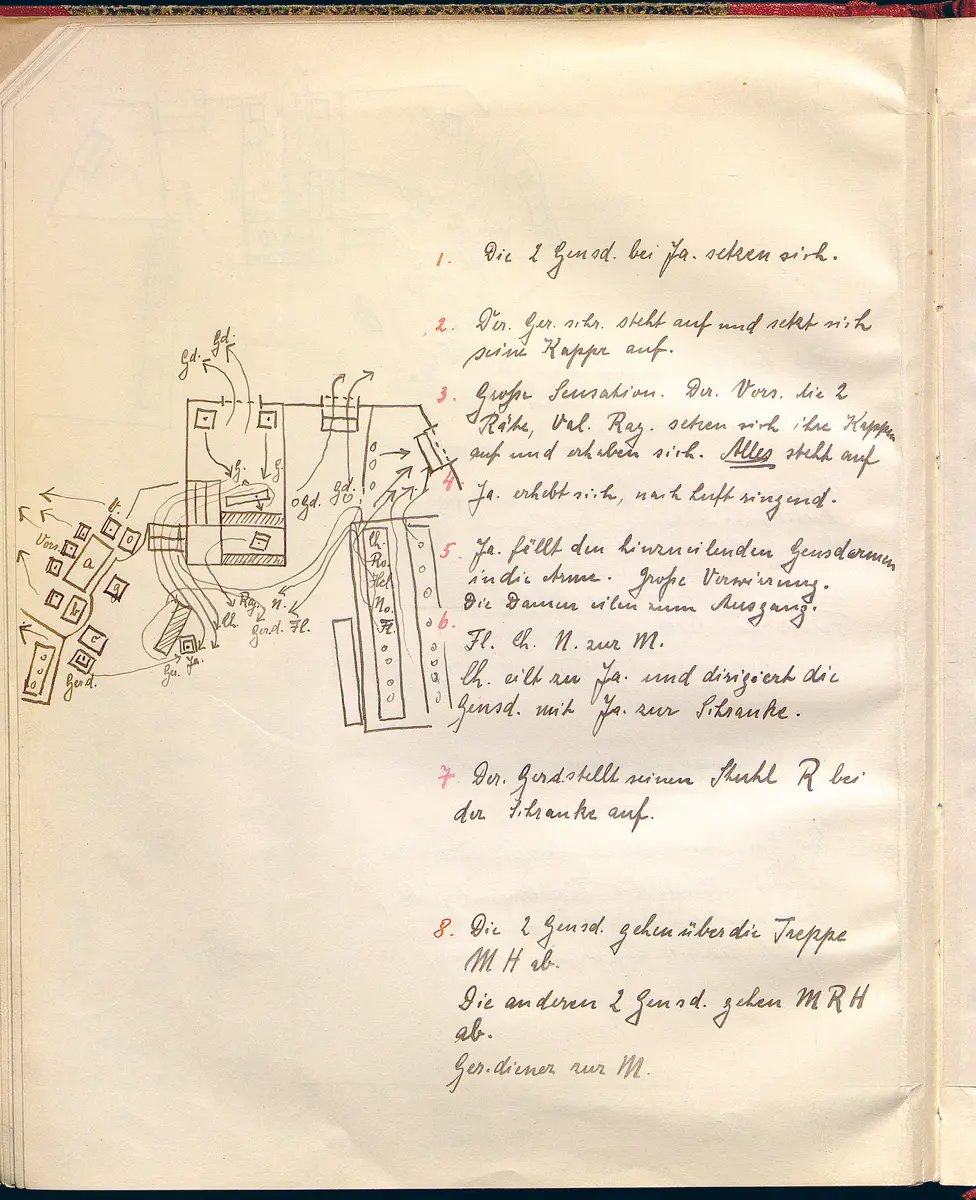 1. Die 2 Gensd. bei Ja. setzen sich.
2. Der. Ger. schr. steht auf und setzt sich
seine Kappe auf.
3. Große Sensation. Der. Vors. die 2
Räthe, Val. Rag. setzen sich ihre Kappen
auf und erheben sich. Alles steht auf
4. Ja. erhebt sich, nach Luft ringend.
5. Ja. fällt den hinzueilenden Gensdarmen
in die Arme. Große Verwirrung.
Die Damen eilen zum Ausgang.
6.
Fl. Ch. N. zur M.
Ch. eilt zu Ja. und dirigiert die
Gensd. mit Ja. zur Schranke.
7 Der. Gerd stellt seinen Stuhl R bei
der Schranke auf.
8. Die 2 Gensd. gehen über die Treppe
M H ab.
Die anderen 2 Gensd. gehen M R H
ab.
Ger. diener zur M.
Gd.
Gd.
G.
G.
Gd.
gd.
V.
Vors.
a
b
c
g
Gerd.
Ger.
Ja.
Ch.
Rag.
Gerd.
N.
Fl.
Ch.
Ro.
Hel
No.
Fl.